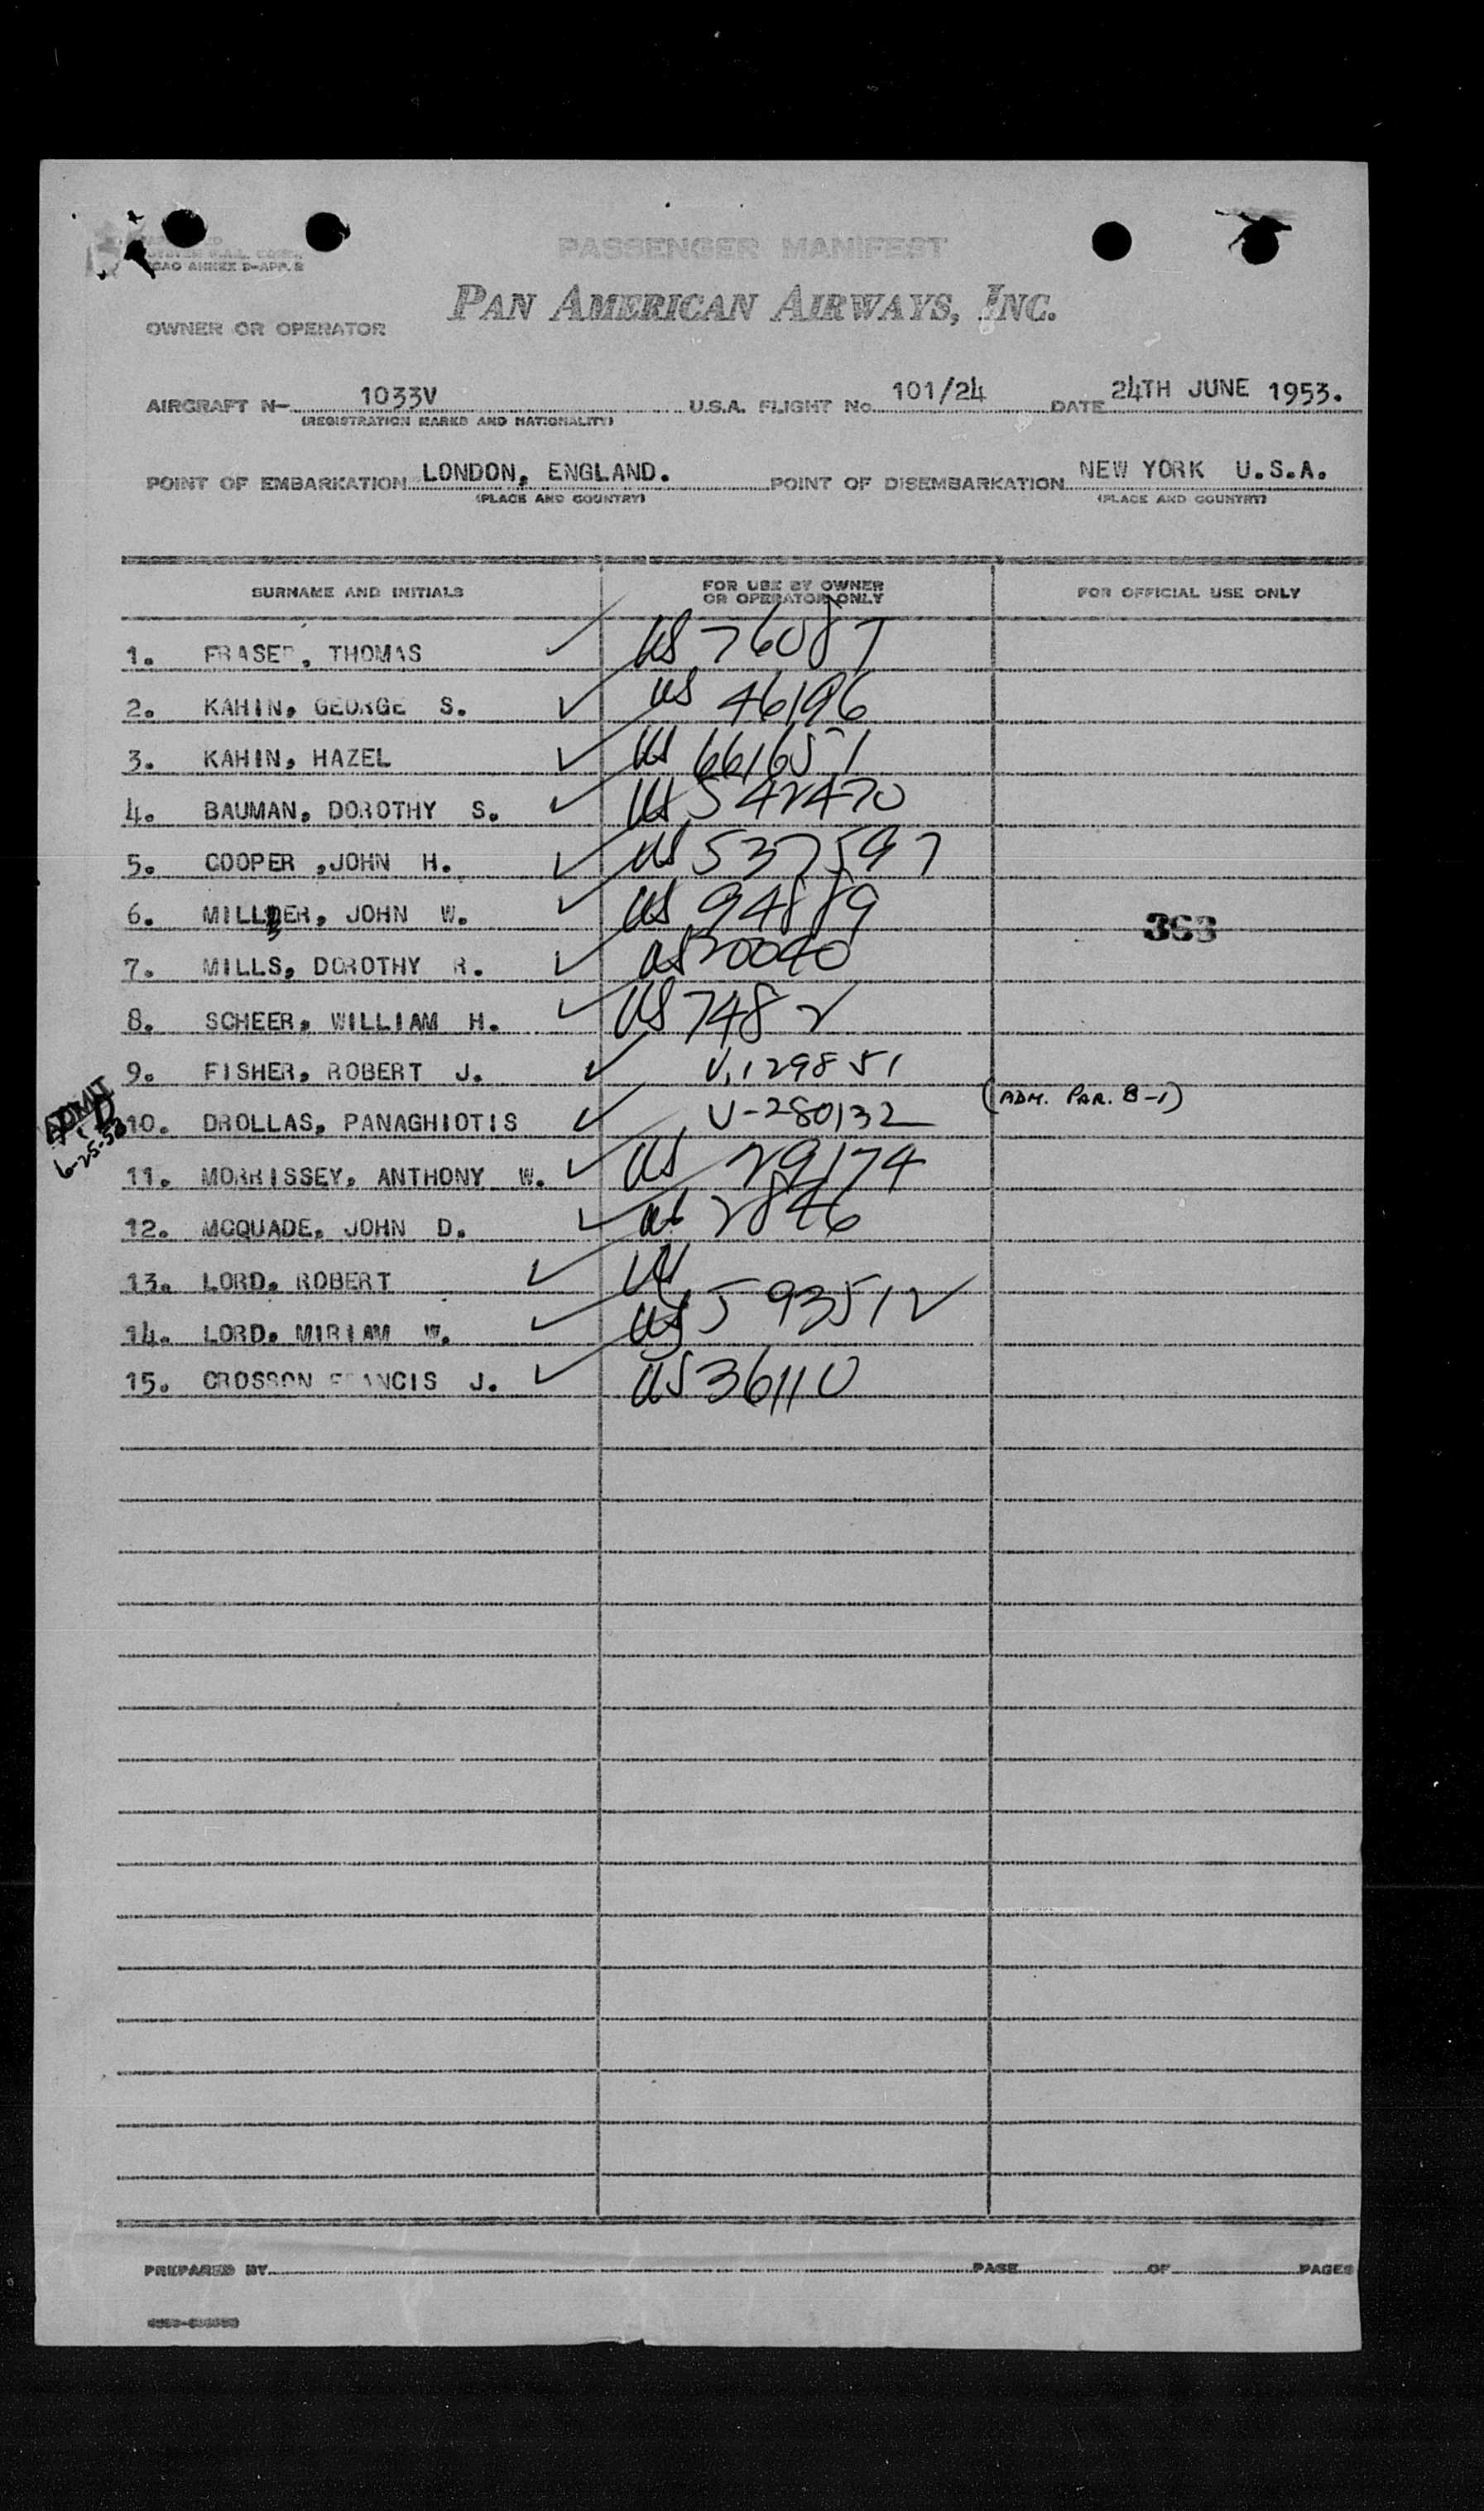 PASSENGER MANIFEST
ICAO ANNEX 9-APP. 2
PAN AMERICAN AIRWAYS, INC.
OWNER OR OPERATOR
AIRCRAFT N- 1033V U.S.A. FLIGHT No. 101/24 DATE 24TH JUNE 1953.
(REGISTRATION MARKS AND NATIONALITY)
POINT OF EMBARKATION LONDON, ENGLAND. POINT OF DISEMBARKATION NEW YORK U.S.A.
(PLACE AND COUNTRY) (PLACE AND COUNTRY)
SURNAME AND INITIALS FOR USE BY OWNER OR OPERATOR ONLY FOR OFFICIAL USE ONLY
1. FRASER, THOMAS ✓ US 76087
2. KAHIN, GEORGE S. ✓ US 46196
3. KAHIN, HAZEL ✓ US 661651
4. BAUMAN, DOROTHY S. ✓ US 542470
5. COOPER ,JOHN H. ✓ US 537597
6. MILLER, JOHN W. ✓ US 94889
363
7. MILLS, DOROTHY R. ✓ US 20040
8. SCHEER, WILLIAM H. ✓ US 7482
9. FISHER, ROBERT J. ✓ V,129851
ADMIT
6-25-53
10. DROLLAS, PANAGHIOTIS ✓ V-280132 (ADM. PAR. B-1)
11. MORRISSEY, ANTHONY W. ✓ US 29174
12. MCQUADE, JOHN D. ✓ US 2846
13. LORD, ROBERT ✓ US
14. LORD, MIRIAM W. ✓ US 593512
15. CROSSON FRANCIS J. ✓ US 36110
PREPARED BY PAGE OF PAGES